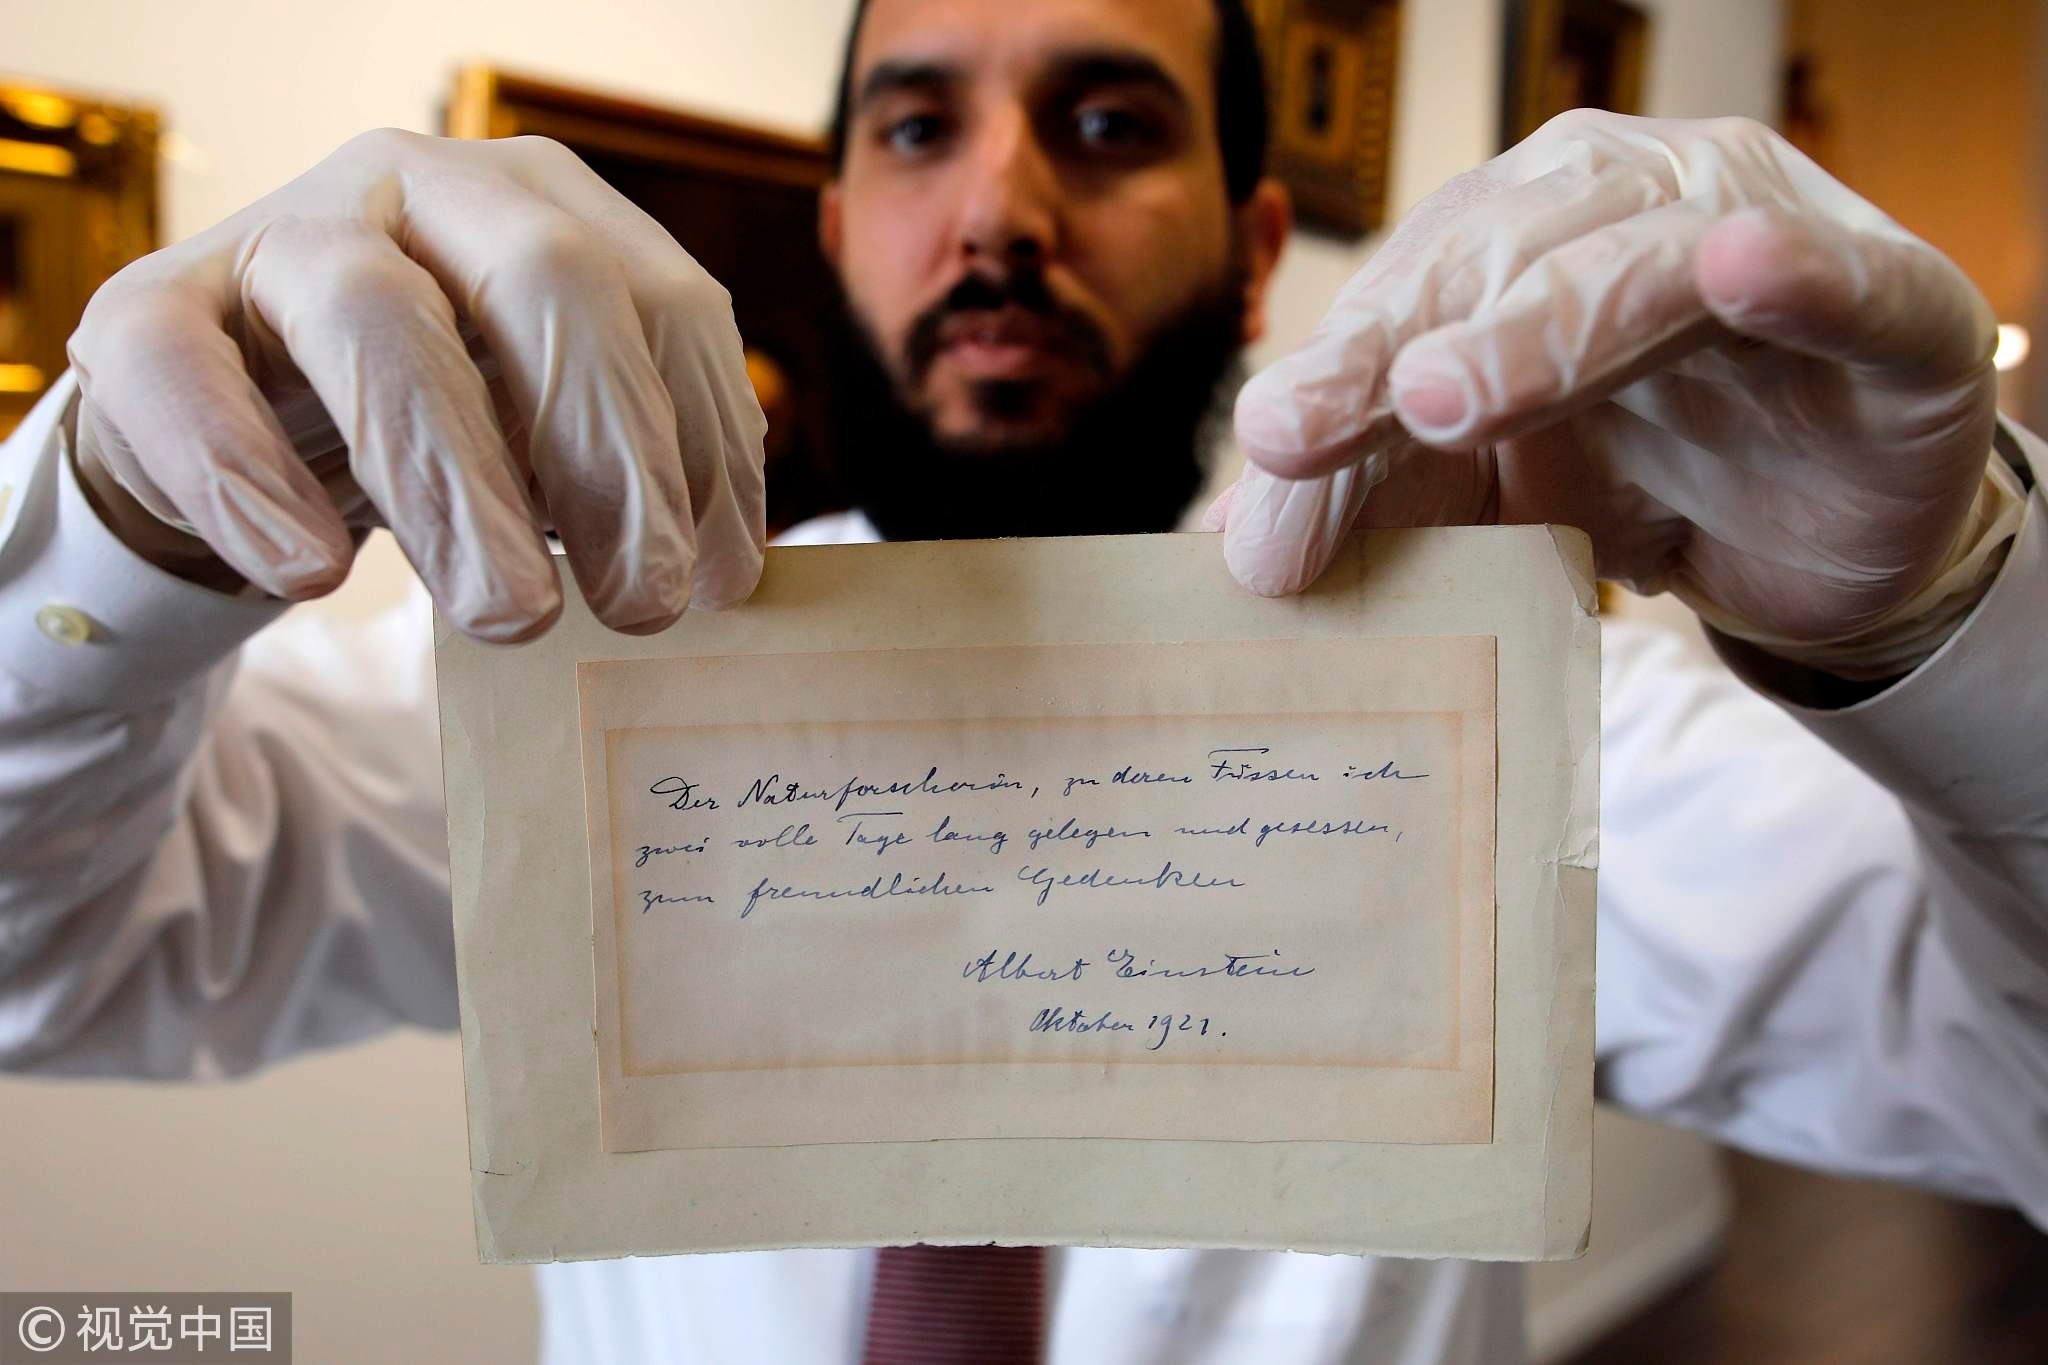 Der Naturforscherin, zu deren Füssen ich
zwei volle Tage lang gelegen und gesessen,
zum freundlichen Gedenken
Albert Einstein
Oktober 1921.
© 视觉中国